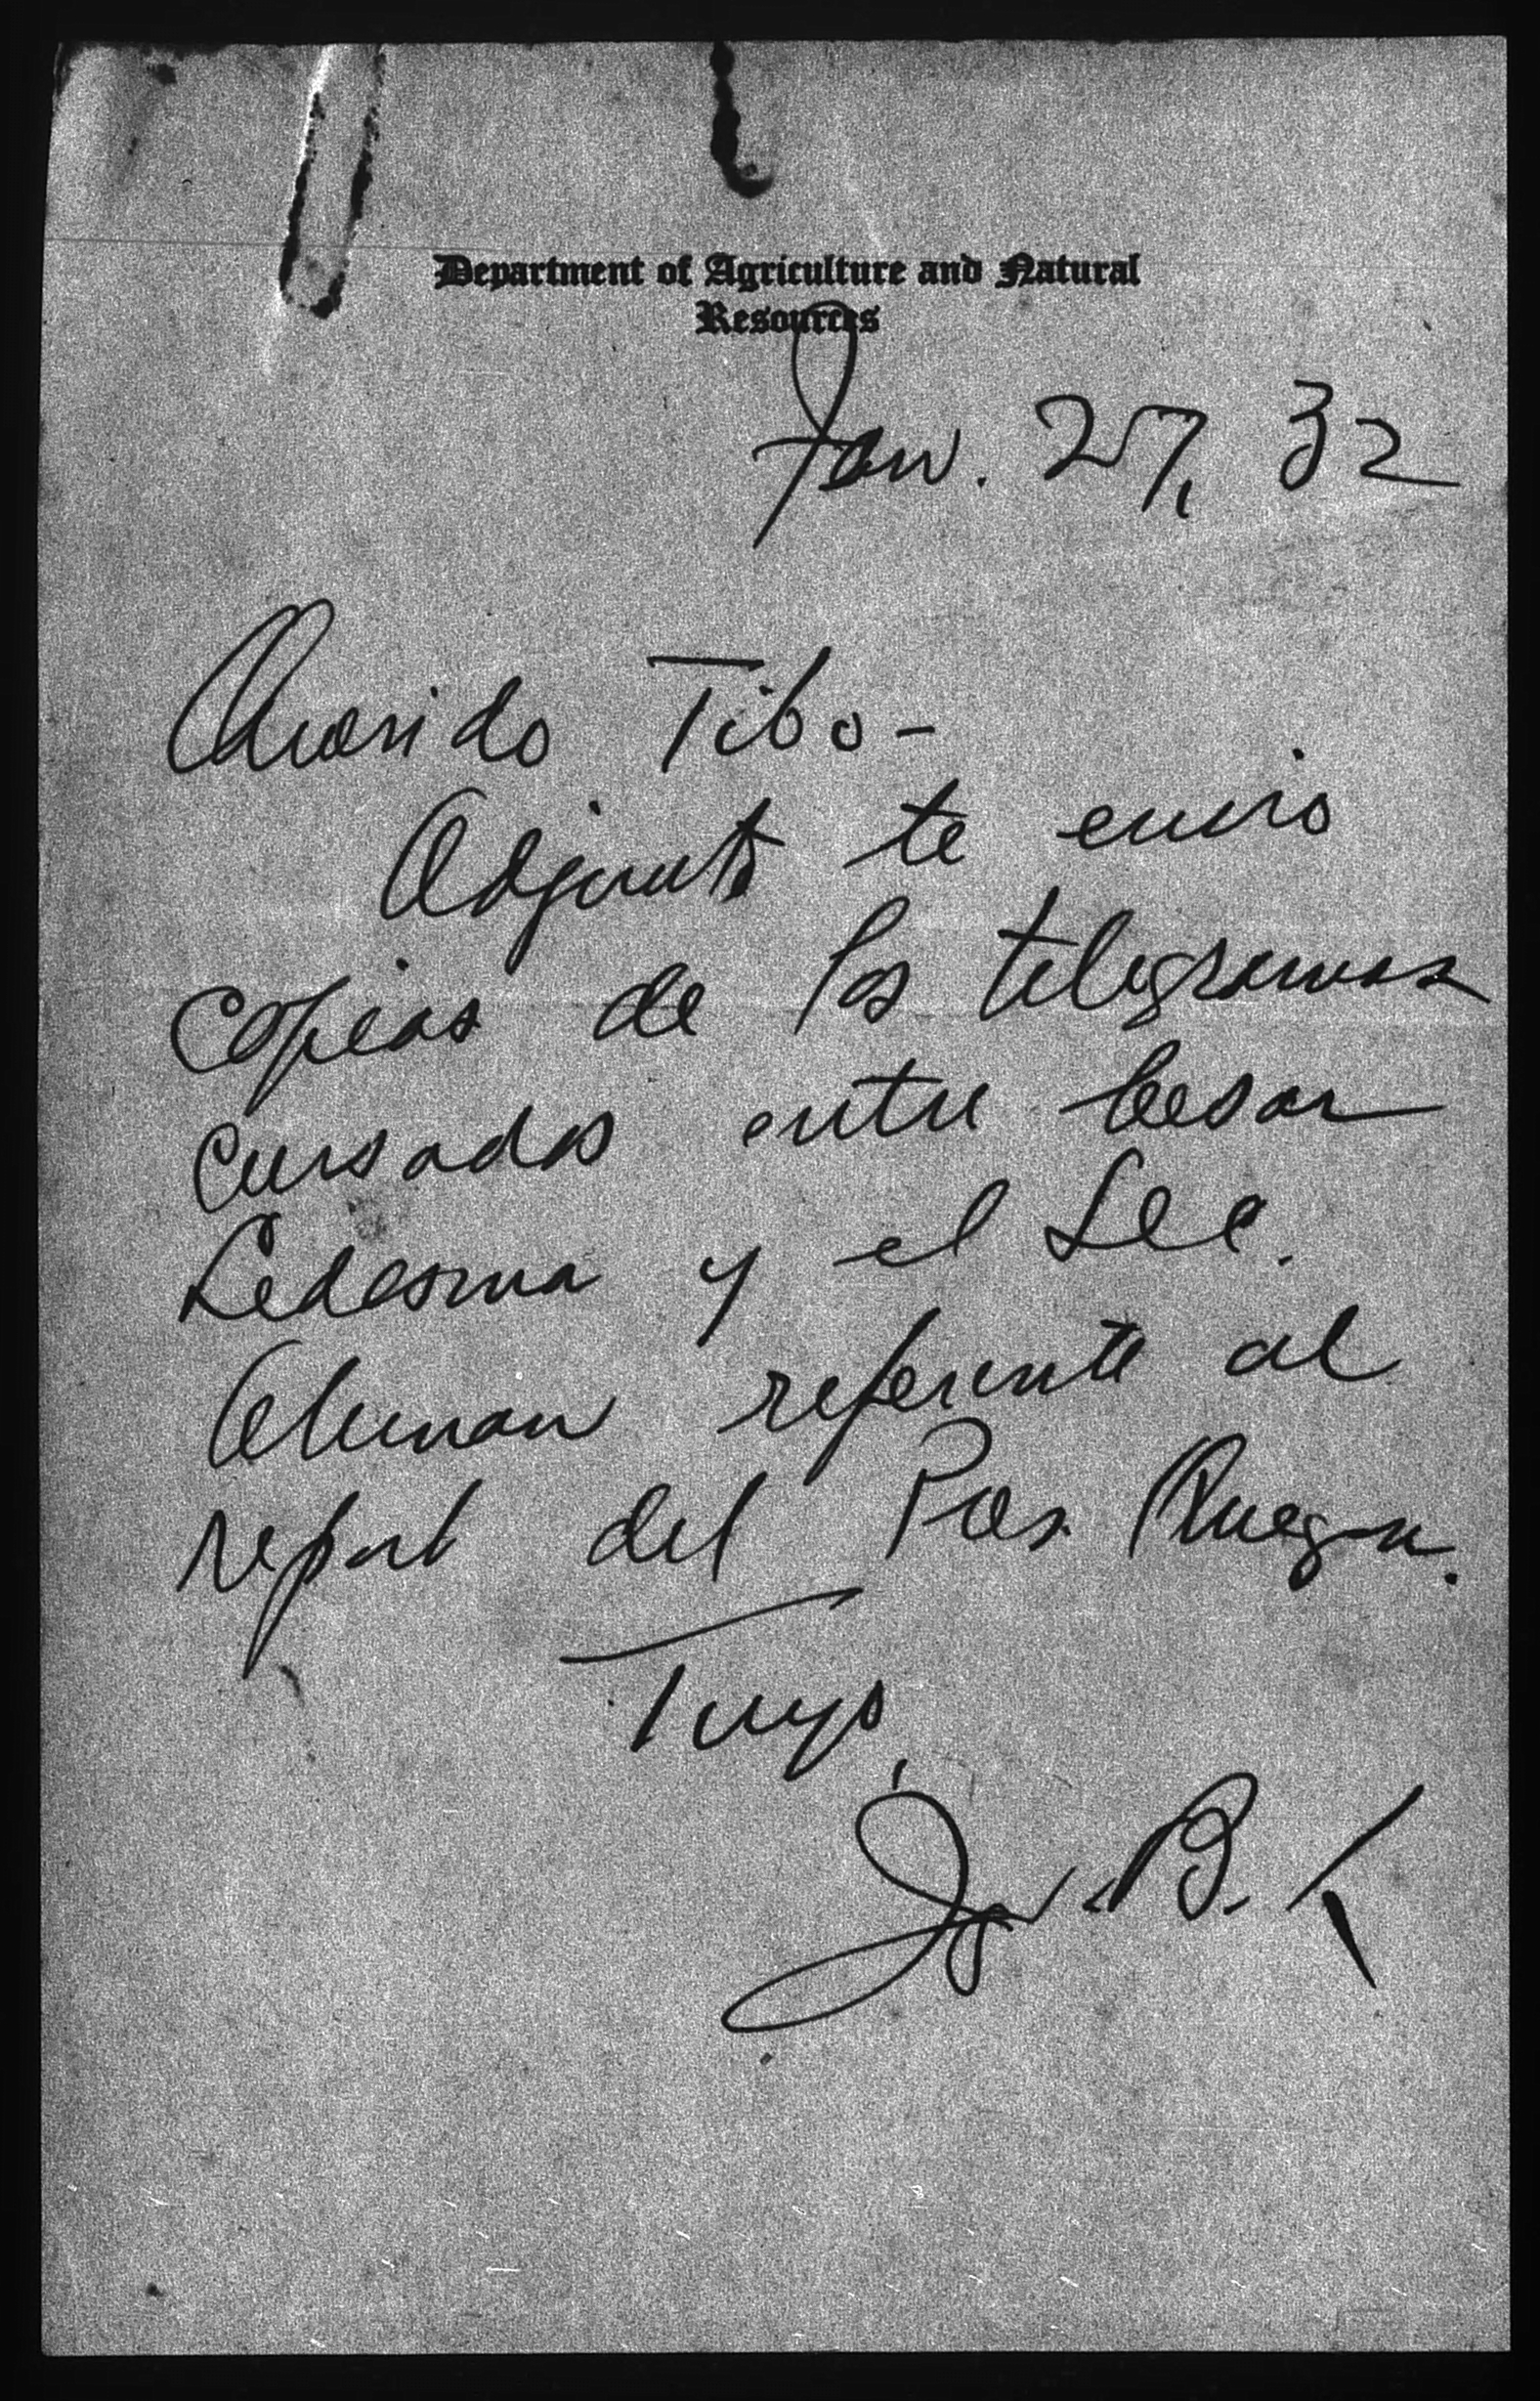 Department of Agriculture and Natural
Resources
Jan. 27, 32
Querido Tibo-
Adjunto te envio
copias de los telegramas
cursados entre Cesar
Ledesma y el Sec.
Alunan referente al
report del Pres. Quezon.
Tuyo,
B.